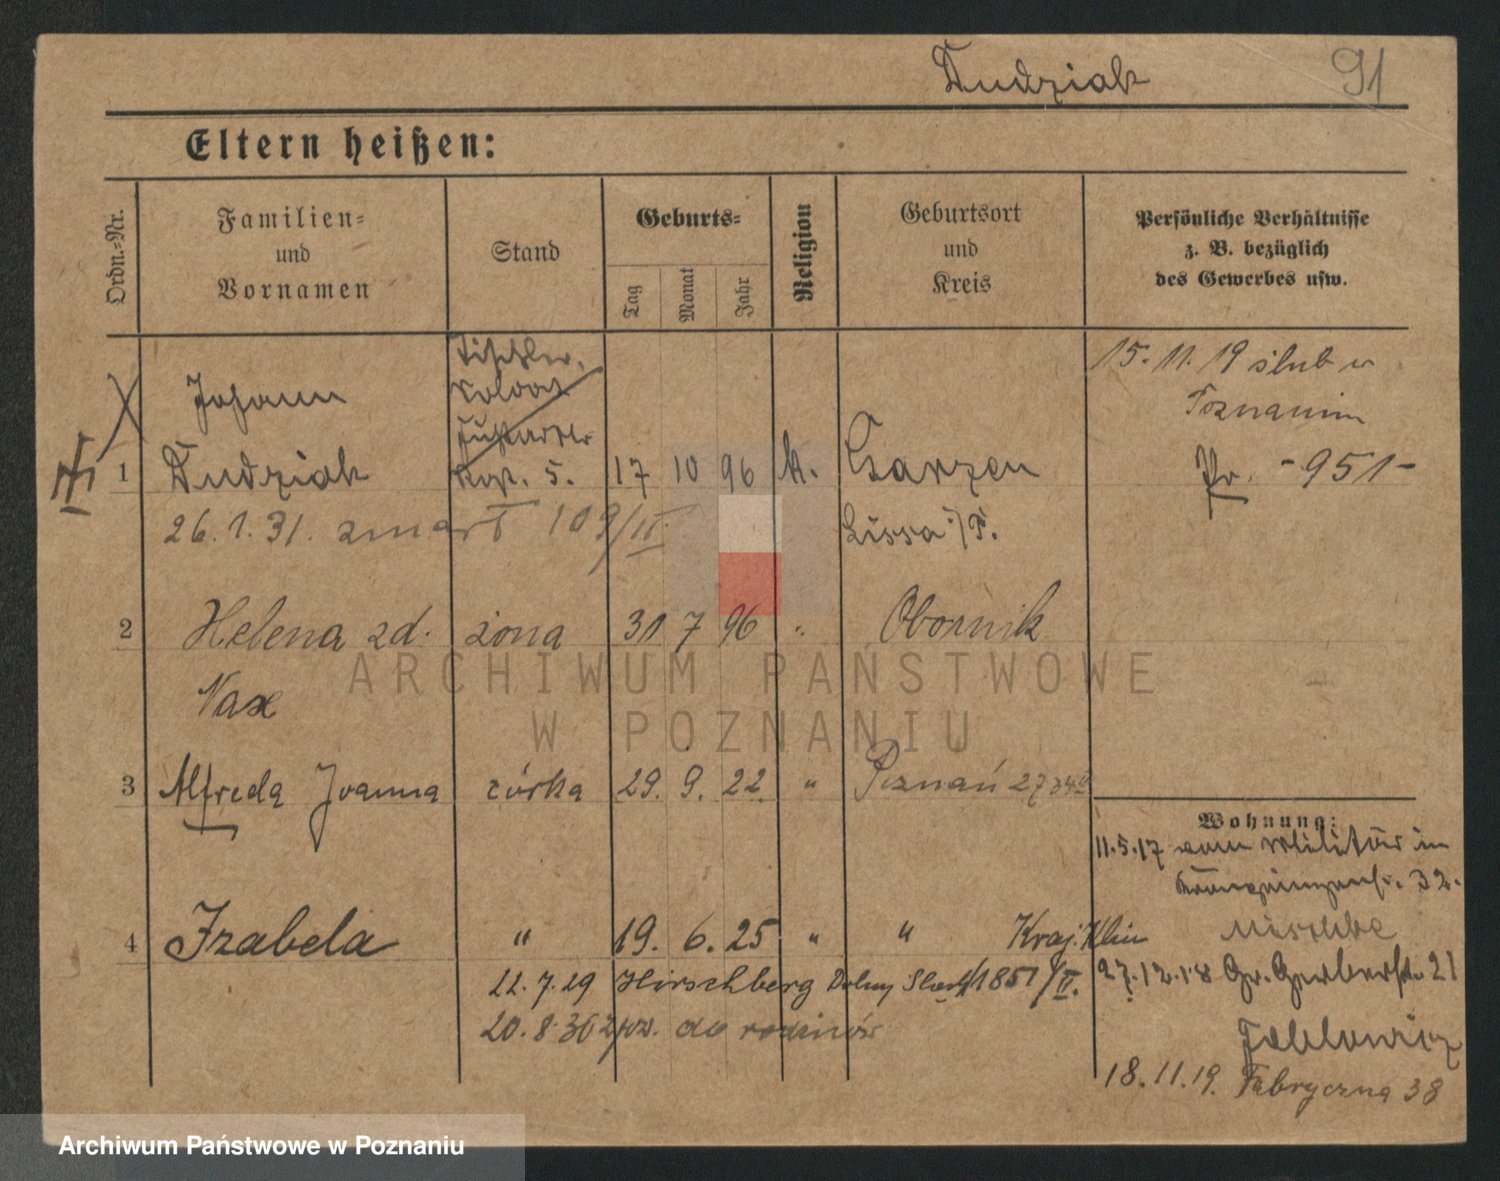 Dudziak 91
Eltern heißen:
Ordn.-Nr.
Familien-
und
Vornamen
Stand
Geburts-
Tag Monat Jahr
Religion
Geburtsort
und
Kreis
Persönliche Verhältnisse
z. B. bezüglich
des Gewerbes usw.
Tischler,
Johann
15. 11. 19 ślub w
Poznaniu
1 Dudziak 5. 17 10 96 k. Garzen
Pr. -951-
26. 1. 31. zmarł 109/II
Lissa i/P.
2 Helena zd. żona 31 7 96 " Obornik
Nax
ARCHIWUM PAŃSTWOWE
W POZNANIU
3 Alfreda Joanna córka 29. 9. 22 " Poznań
Wohnung:
11.5.17 vom Militär in
32.
4 Izabela " 19. 6. 25 " "
27.12.18 Gr. Gerberstr. 21
7. 29 Hirschberg Dolny 1851/II.
20. 8. 36 do rodziców
18. 11. 19. Fabryczna 38
Archiwum Państwowe w Poznaniu